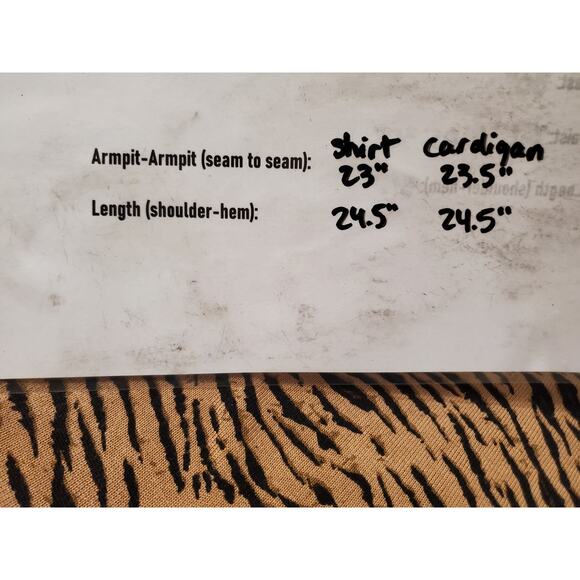 shirt cardigan
Armpit-Armpit (seam to seam): 23" 23.5"
Length (shoulder-hem): 24.5" 24.5"